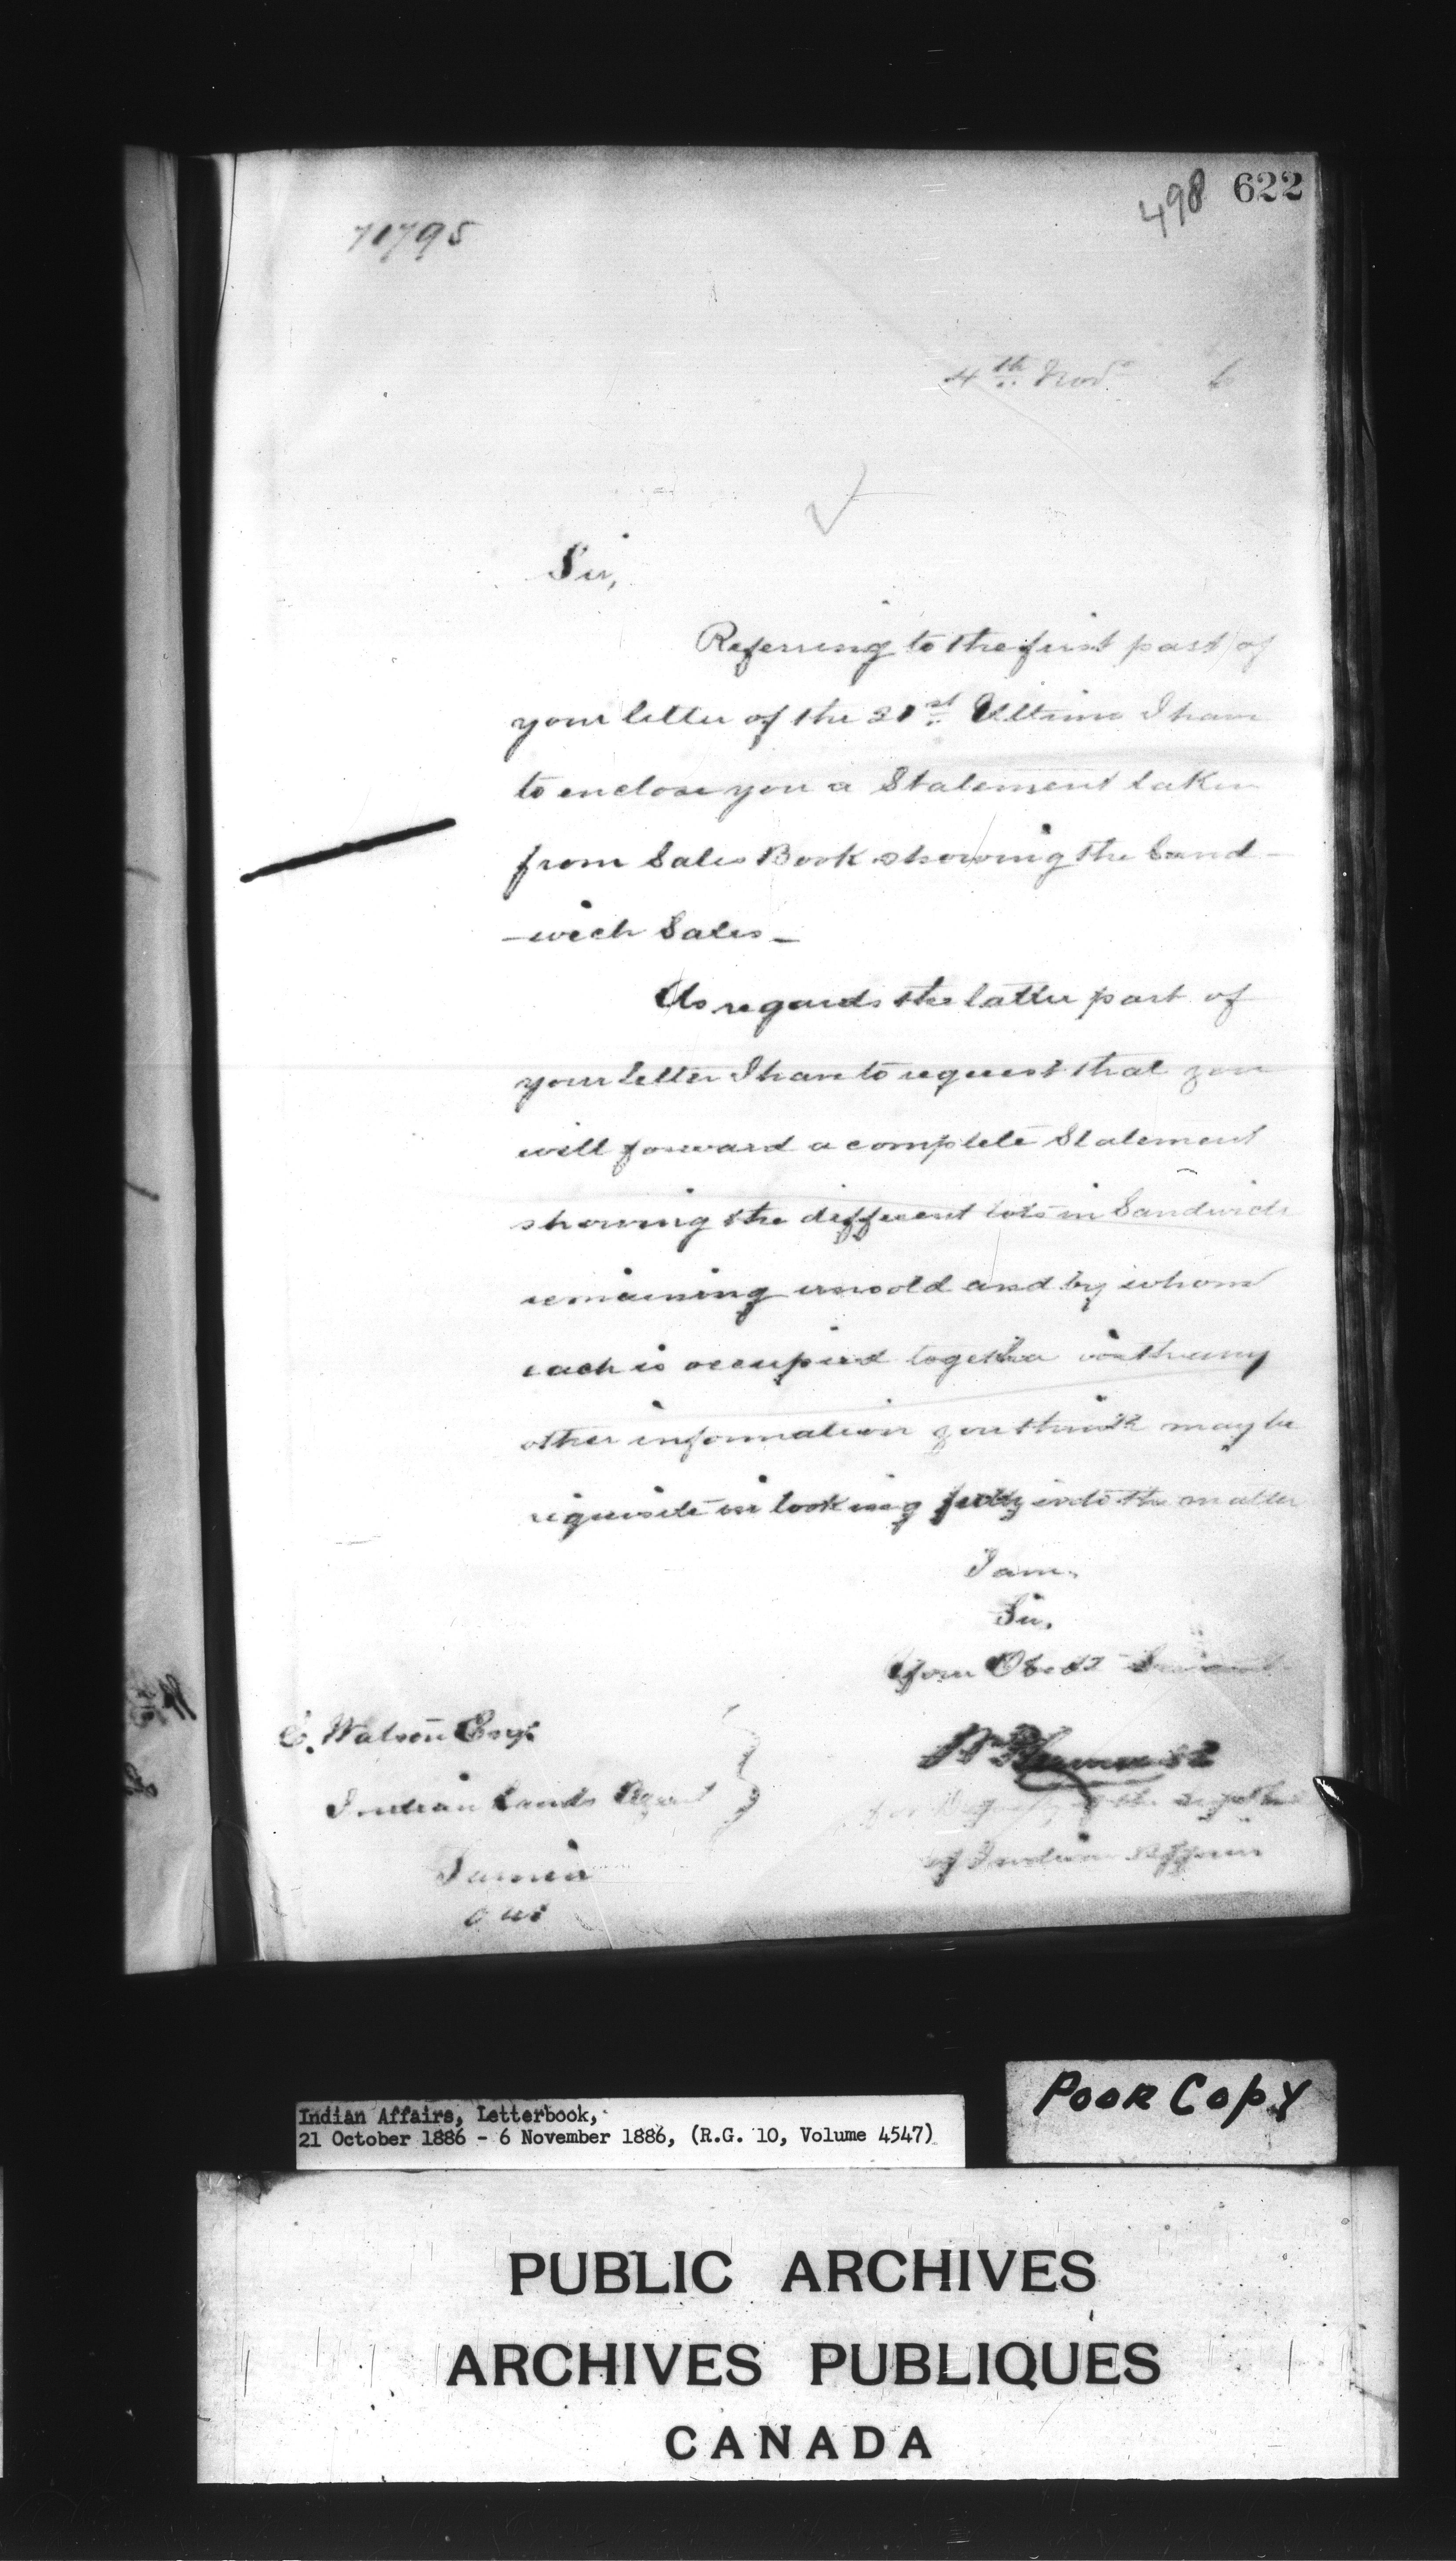 622
498
71795
4th Novr 6
Sir,
Referring to the first part of
your letter of the 21st Ultimo I have
to enclose you a Statement taken
from Sales Book showing the Sand-
-wich Sales_
As regards the latter part of
your letter I have to request that you
will forward a complete Statement
showing the different lots in Sandwich
remaining unsold and by whom
each is occupied together with any
other information you think may be
requisite in looking fully into the matter
I am.
Sir.
Your Obedt Servant
E. Watson Esqr.
Indian Lands Agent
Sarnia
Ont
for Deputy of the Supt Genl
of Indian Affairs
Poor Copy
Indian Affairs, Letterbook,
21 October 1886 - 6 November 1886, (R.G. 10, Volume 4547)
PUBLIC ARCHIVES
ARCHIVES PUBLIQUES
CANADA